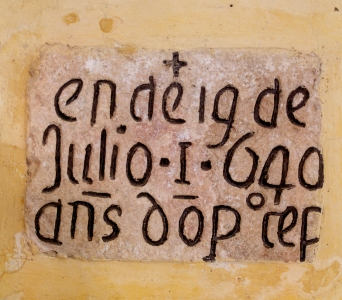 ✝
en de 19 de
Julio·I·640
an̄s dōp° cef